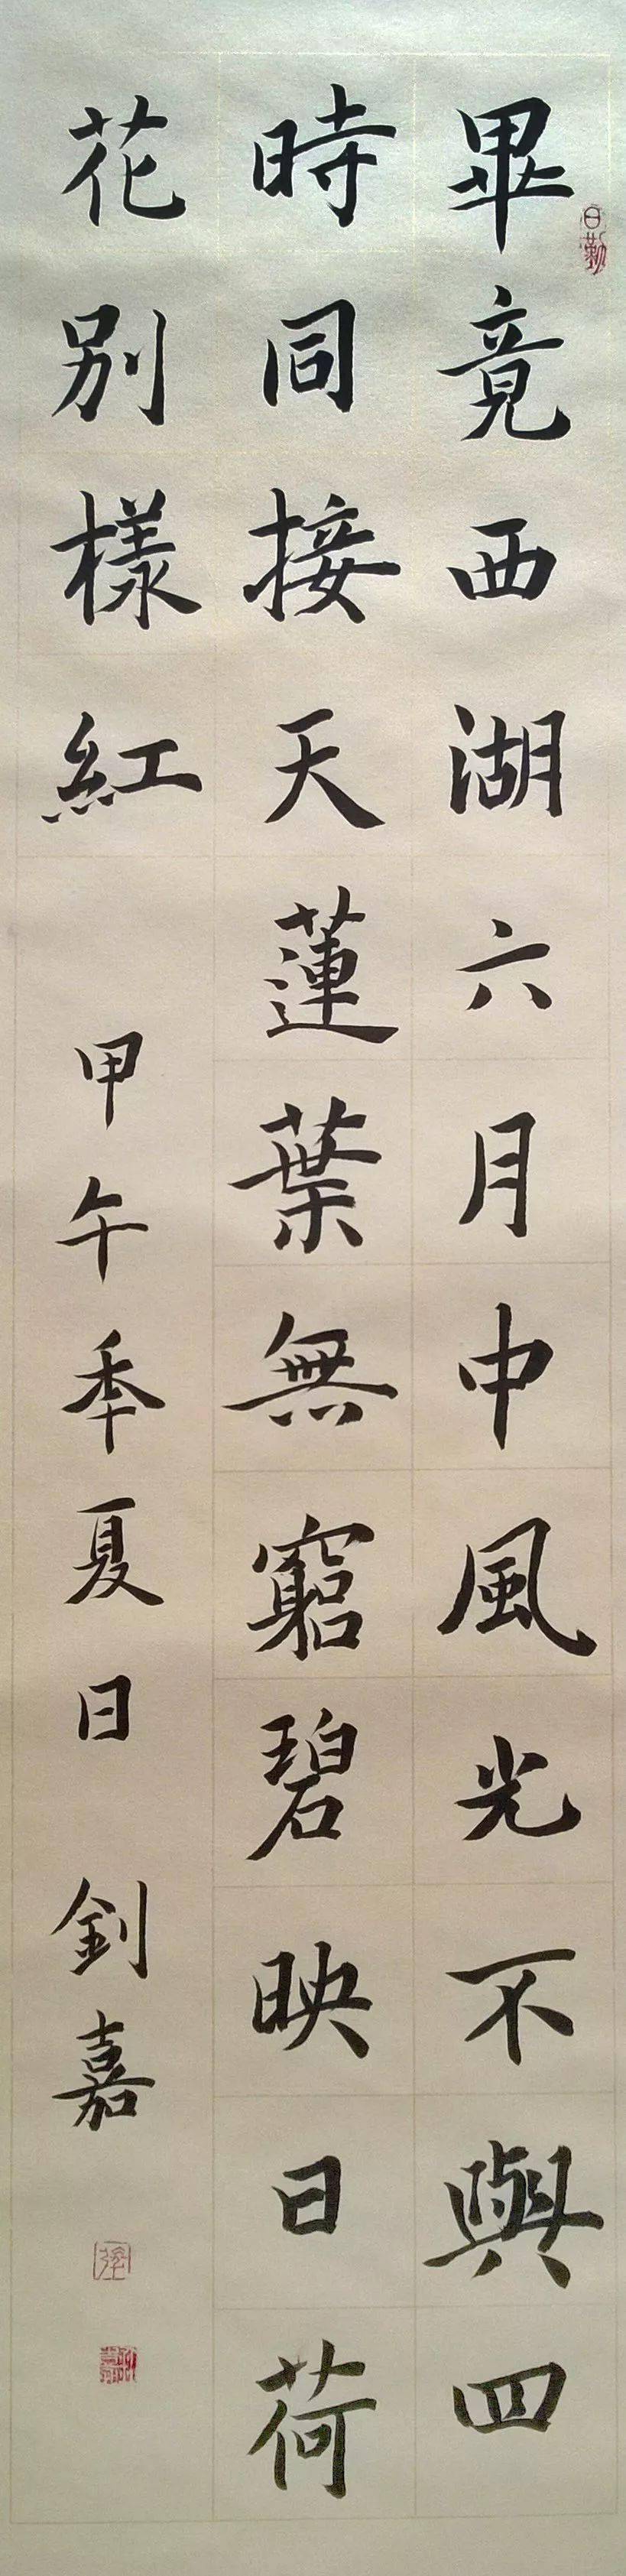 畢竟西湖六月中風光不與四
時同接天蓮葉無窮碧映日荷
花別樣紅
甲午季夏日 釗嘉
日勤